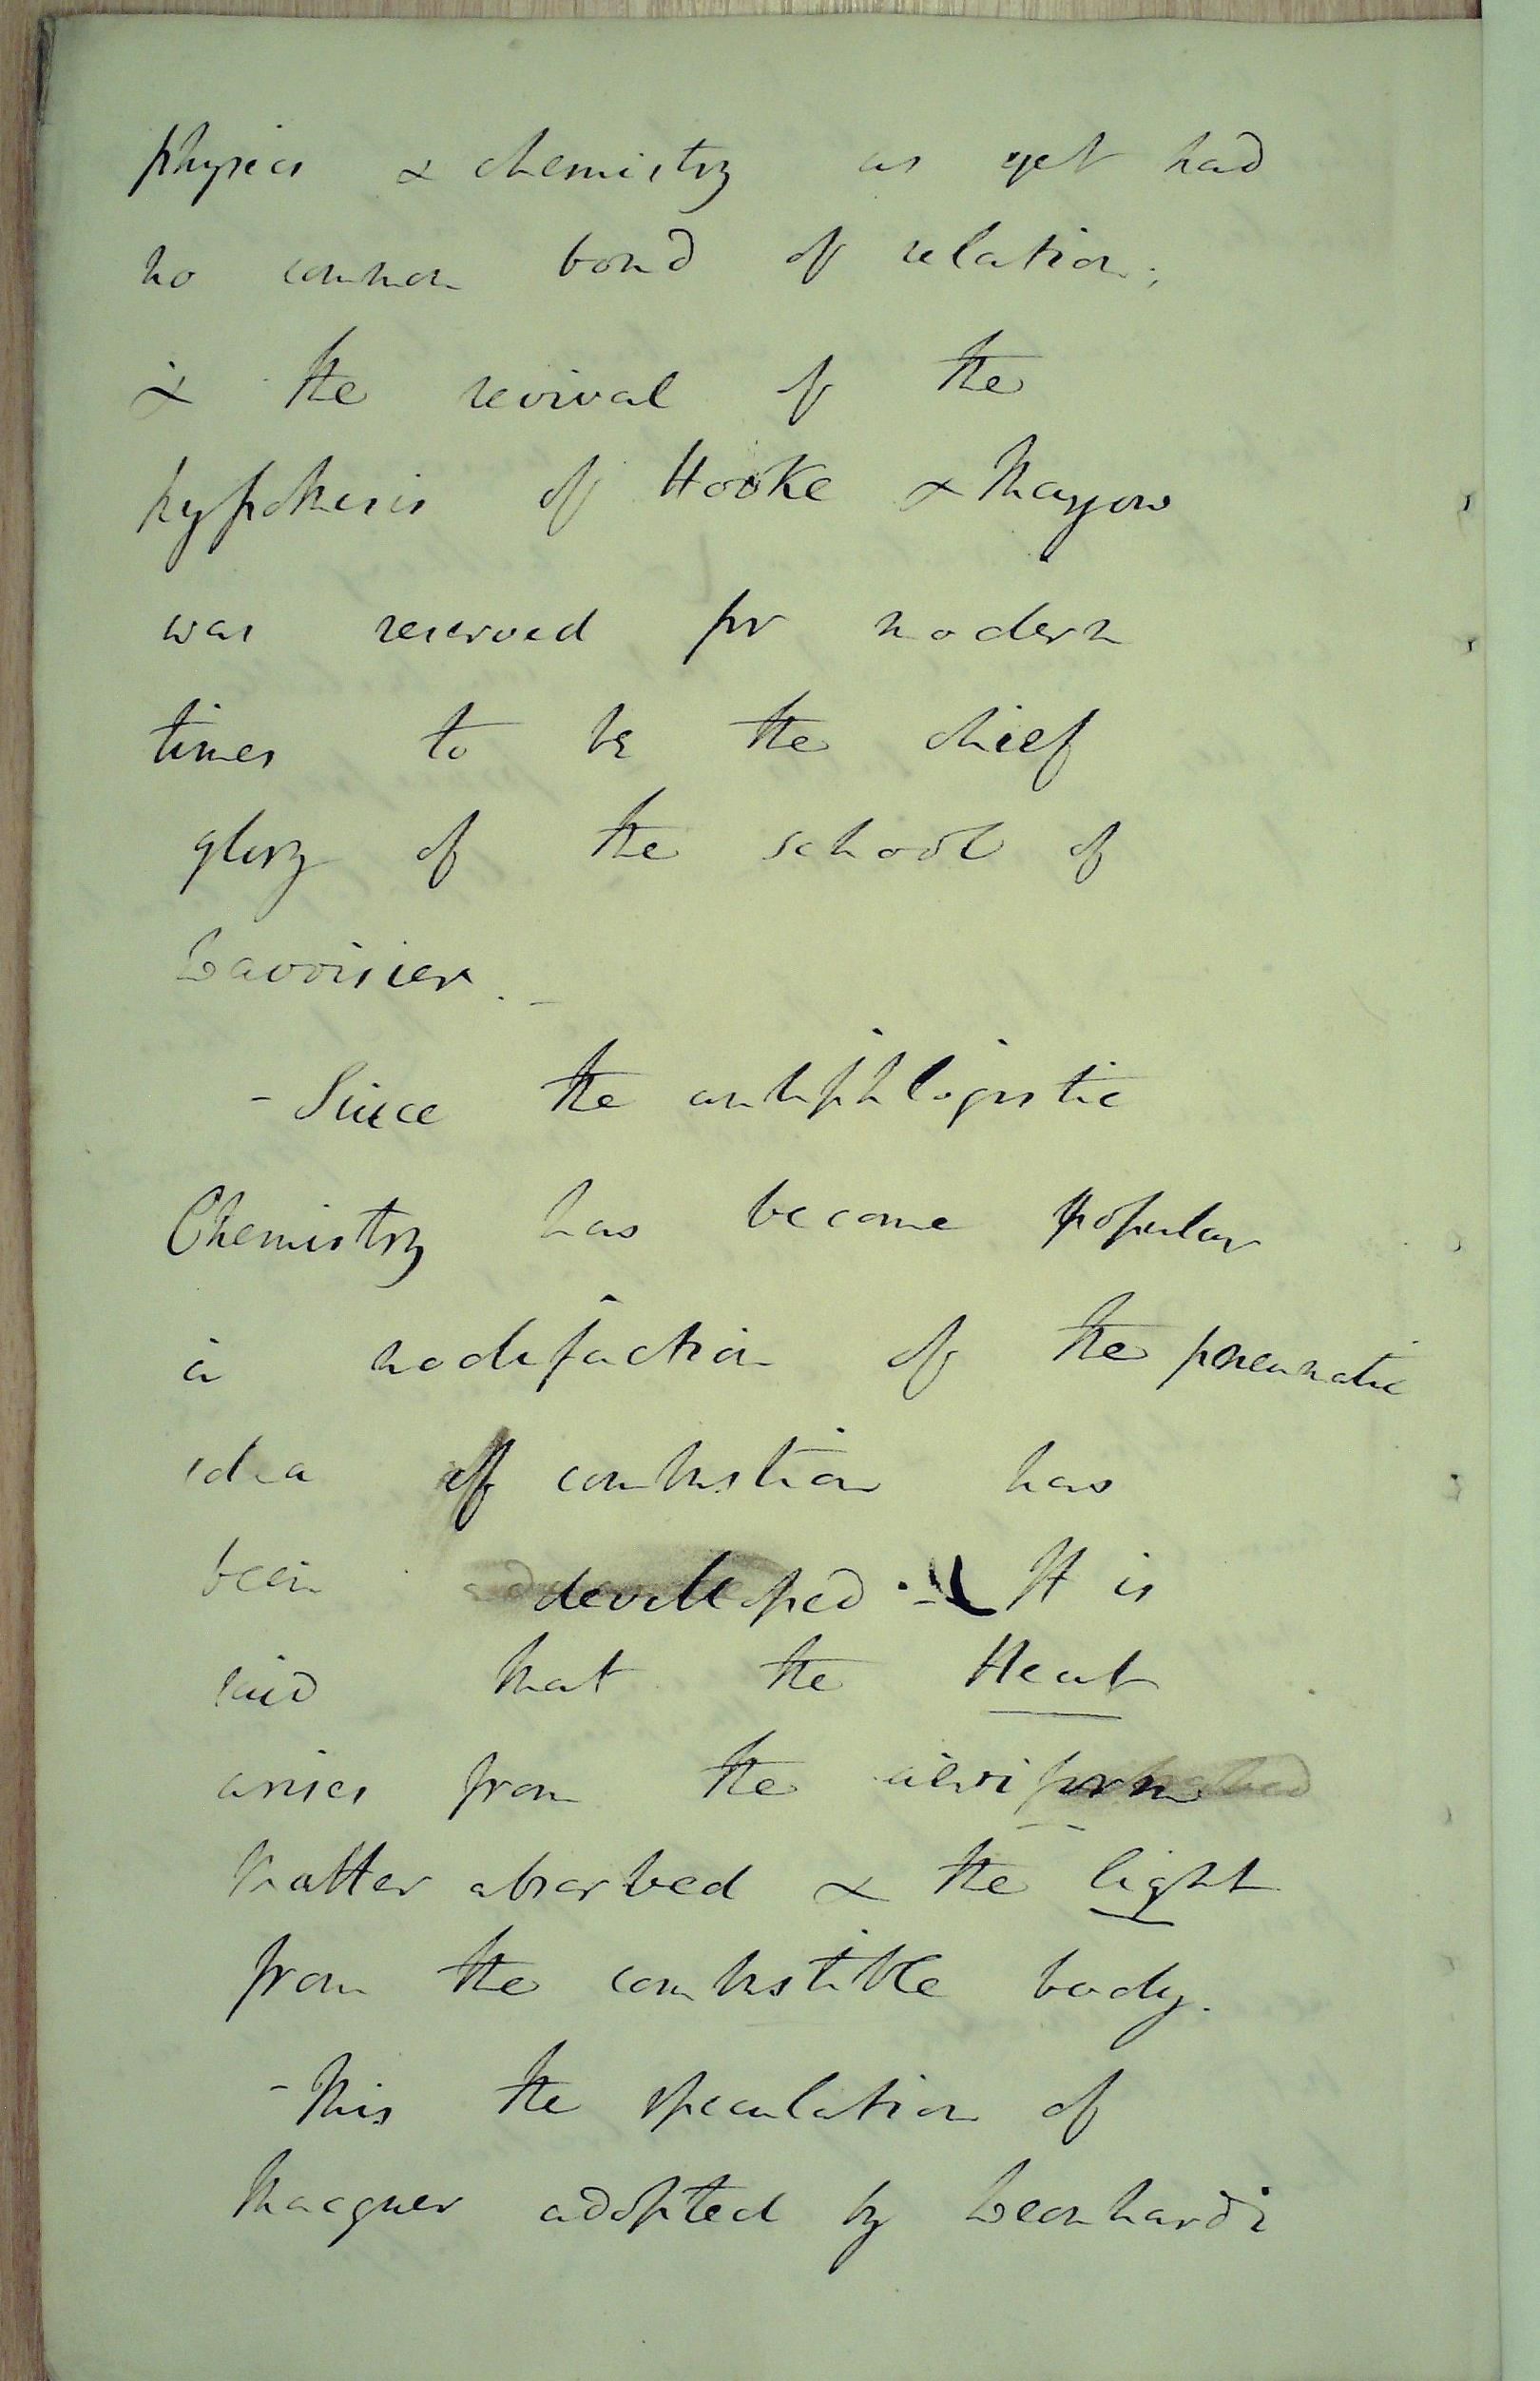 physics & chemistry as yet had
no common bond of relation;
& the revival of the
hypothesis of Hooke & Mayow
was reserved for modern
times to be the chief
glory of the school of
Lavoisier. _
- Since the antiphlogistic
Chemistry has become popular
a modifaction of the pneumatic
idea of combustion has
been developed. - It is
said that the Heat
arises from the aeriform
matter absorbed & the light
from the combustible body.
- This the speculation of
Macquer adopted by Leonhardi